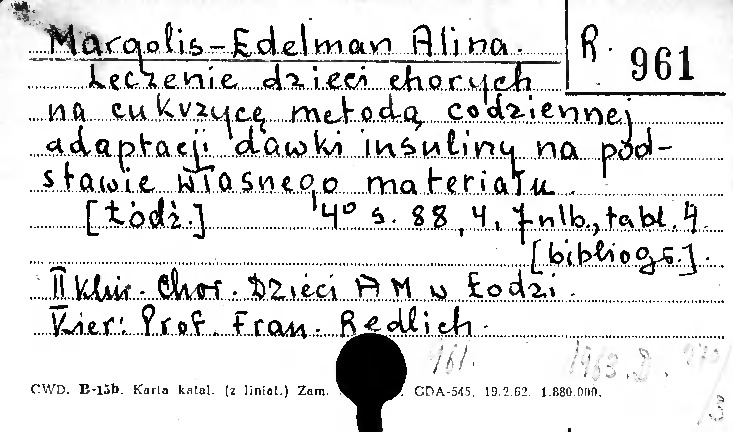 Margolis-Edelman Alina. R. 961
Leczenie dzieci chorych
na cukrzycę metodą codziennej
adaptacji dawki insuliny na pod-
stawie własnego materiału.
[Łódź.] 4° s. 88, 4, 7 nlb., tabl. 4.
[bibliogr.].
II Klin. Chor. Dzieci AM w Łodzi.
Kier: Prof. Fran. Redlich.
961. 1963.D.
CWD. B-15b. Karta katal. (z liniat.) Zam. GDA-545, 19.2.62. 1.880.000.